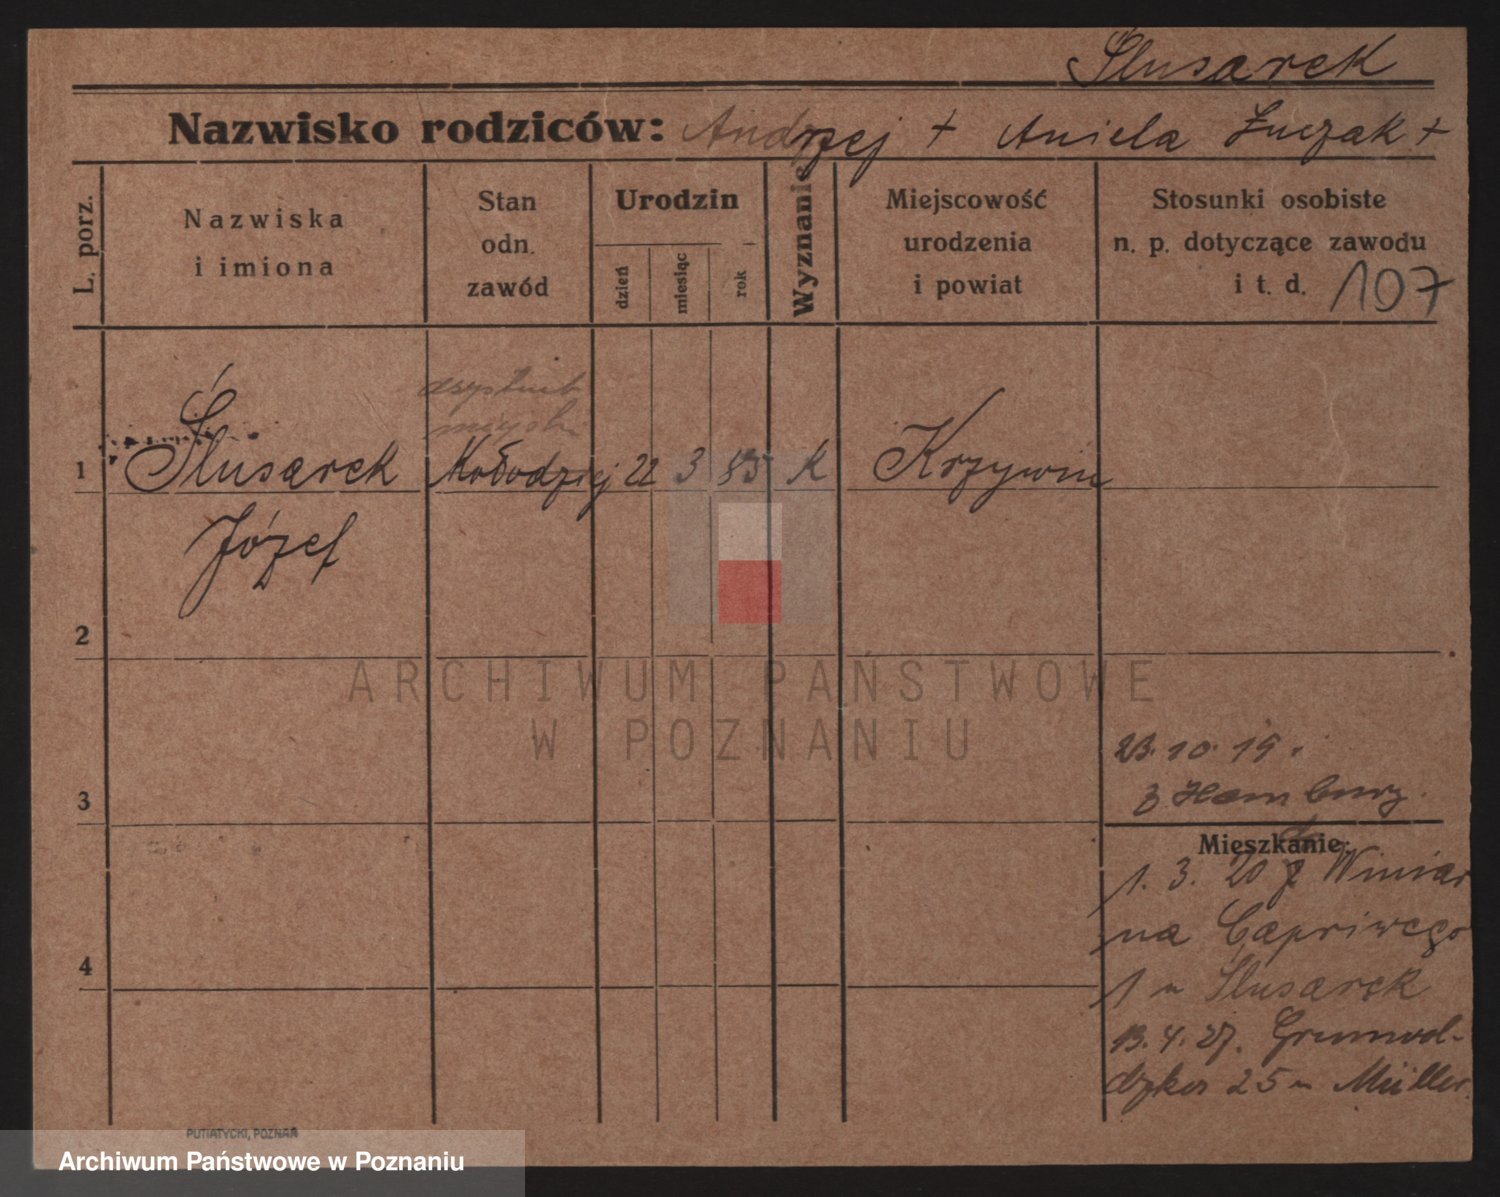 Ślusarek
Nazwisko rodziców: Andrzej + Aniela Łuczak +
L. porz.
Nazwiska
i imiona
Stan
odn.
zawód
Urodzin
dzień
miesiąc
rok
Wyznanie
Miejscowość
urodzenia
i powiat
Stosunki osobiste
n. p. dotyczące zawodu
i t. d. 107
asystent
miejski
1 Ślusarek Mołodziej 22 3 85 K Krzywin
Józef
2
ARCHIWUM PAŃSTWOWE
W POZNANIU
23.10.19.
3
z Hamburg.
Mieszkanie:
1. 3. 20 z Winiar
na Capriwego
4
1 m Ślusarek
13.4.27. Grunwal-
dzka 25 m Müller
PUTIATYCKI, POZNAŃ
Archiwum Państwowe w Poznaniu